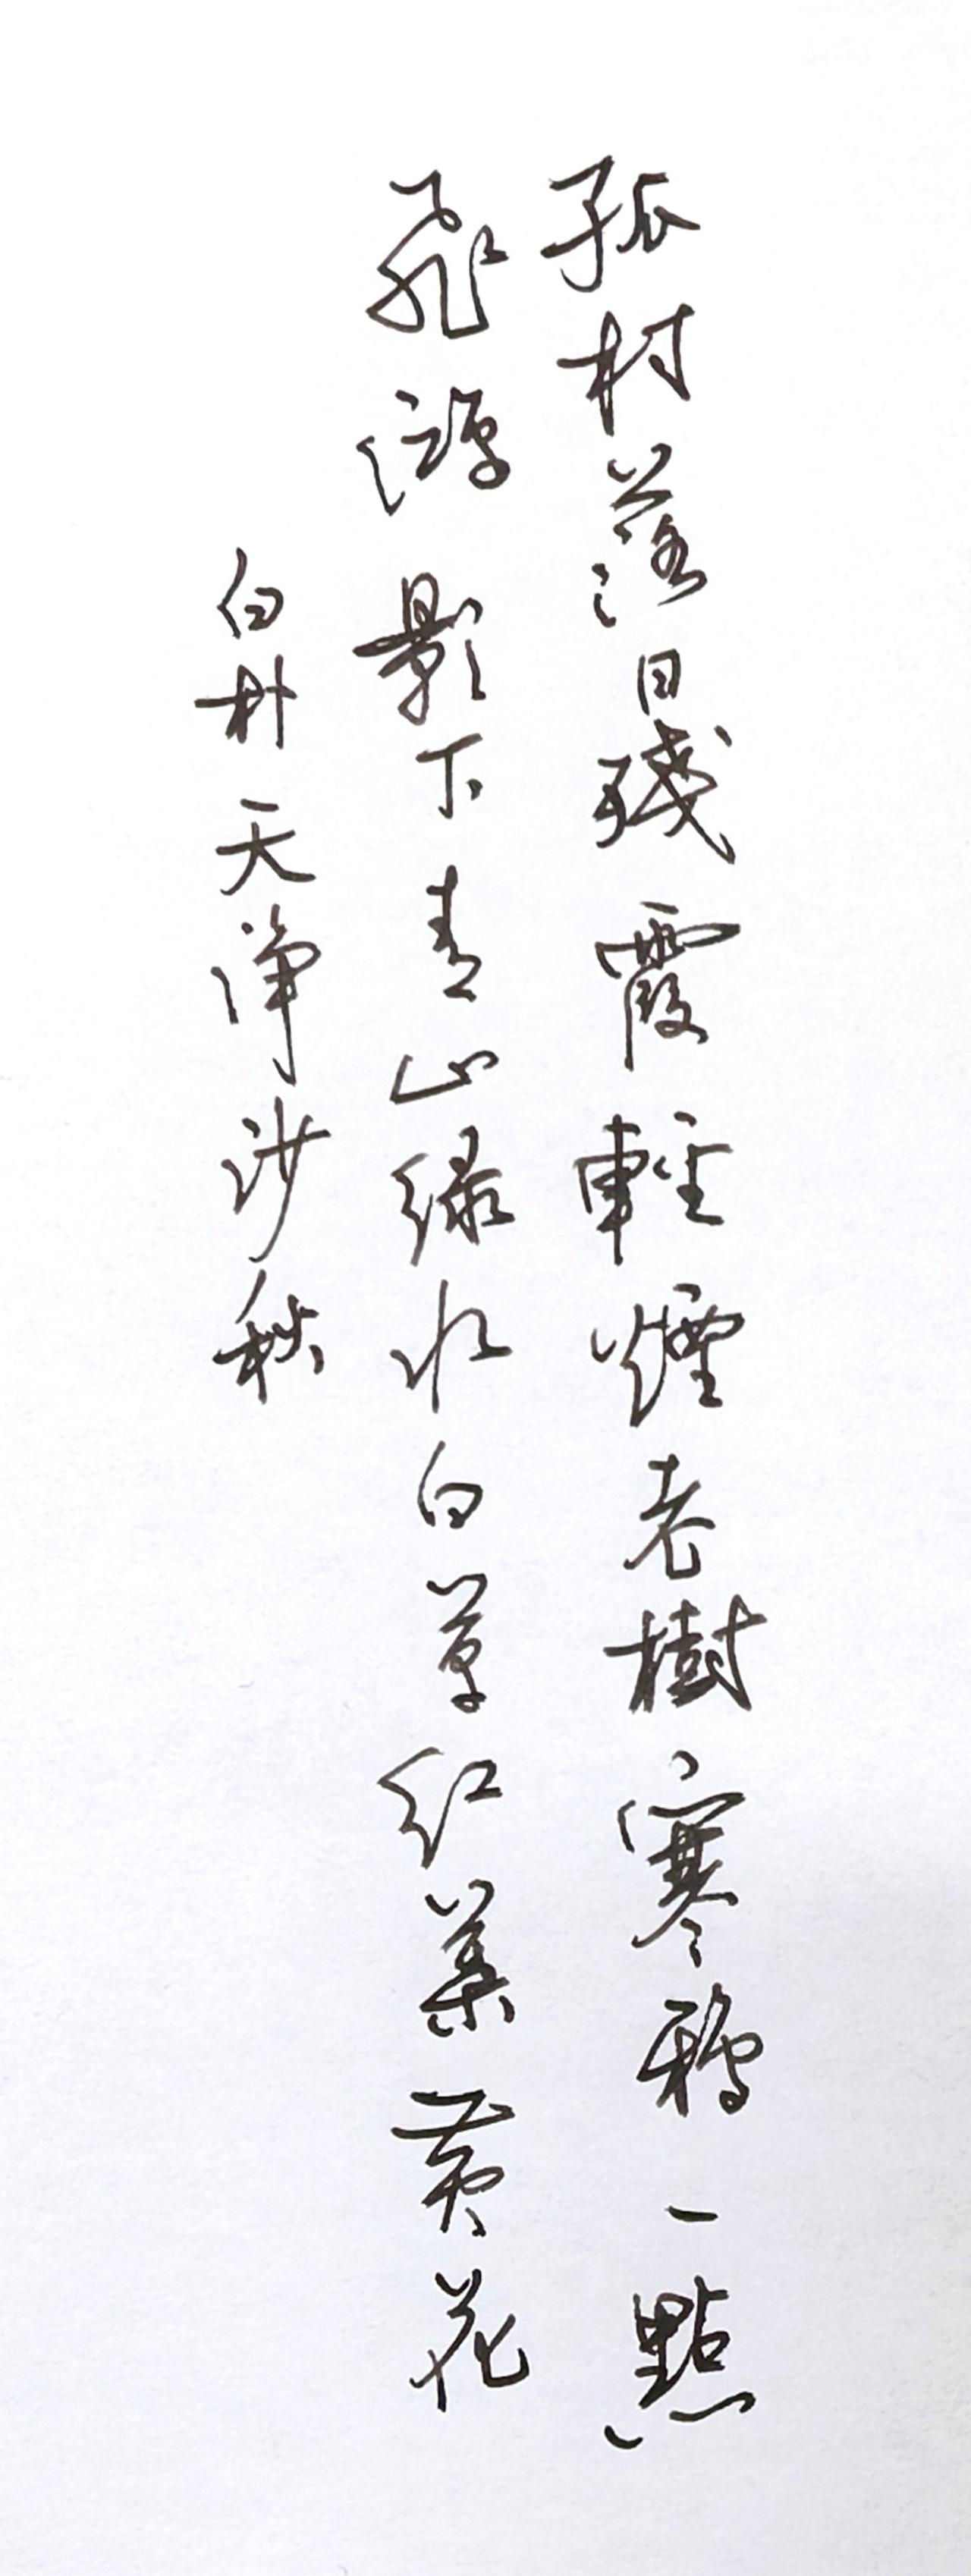 孤村落日殘霞輕煙老樹寒鴉一點
飛鴻影下青山绿水白草红葉黄花
白朴天净沙秋